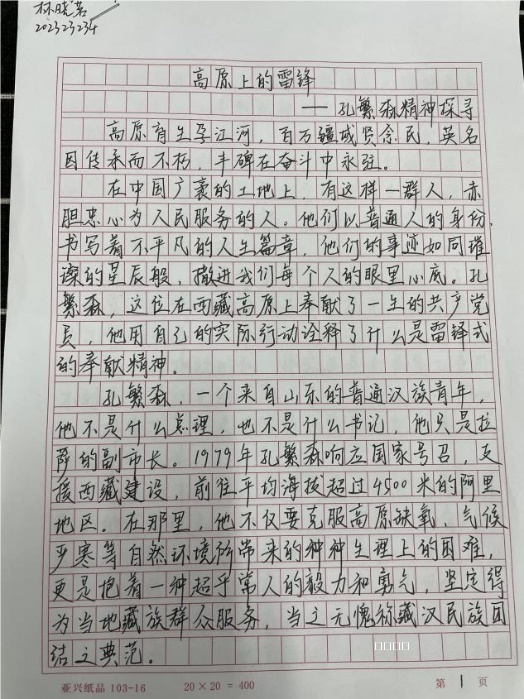 林晓茗
202323234
高原上的雷锋
——孔繁森精神探寻
高原育生孕江河，百万疆域贤余民，英名
因传承而不朽，丰碑在奋斗中永驻。
在中国广袤的土地上，有这样一群人，赤
胆忠心为人民服务的人。他们以普通人的身份，
书写着不平凡的人生篇章，他们的事迹如同璀
璨的星辰般，撒进我们每个人的眼里心底。孔
繁森，这位在西藏高原上奉献了一生的共产党
员，他用自己的实际行动诠释了什么是雷锋式
的奉献精神。
孔繁森，一个来自山东的普通汉族青年，
他不是什么总理，也不是什么书记，他只是拉
萨的副市长。1979年孔繁森响应国家号召，支
援西藏建设，前往平均海拔超过4500米的阿里
地区。在那里，他不仅要克服高原缺氧，气候
严寒等自然环境所带来的种种生理上的困难，
更是抱着一种超乎常人的毅力和勇气，坚定得
为当地藏族群众服务，当之无愧称藏汉民族团
结之典范。
亚兴纸品 103-16 20×20=400 第 1 页